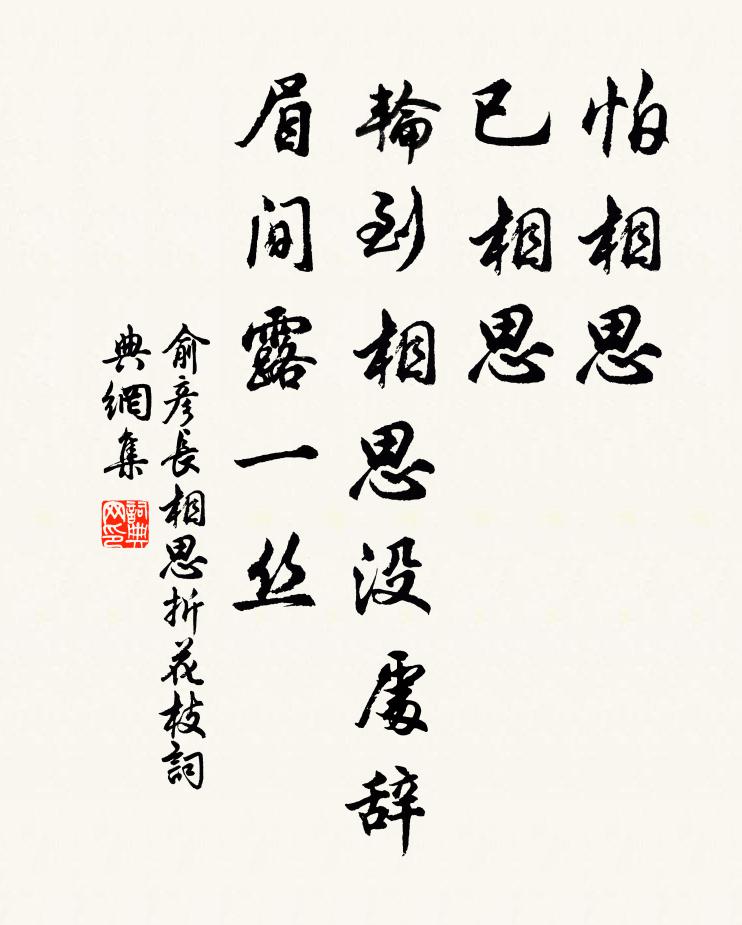 怕相思
已相思
輪到相思没處辞
眉间露一丝
俞彦長相思折花枝詞
典網集
詞典网印